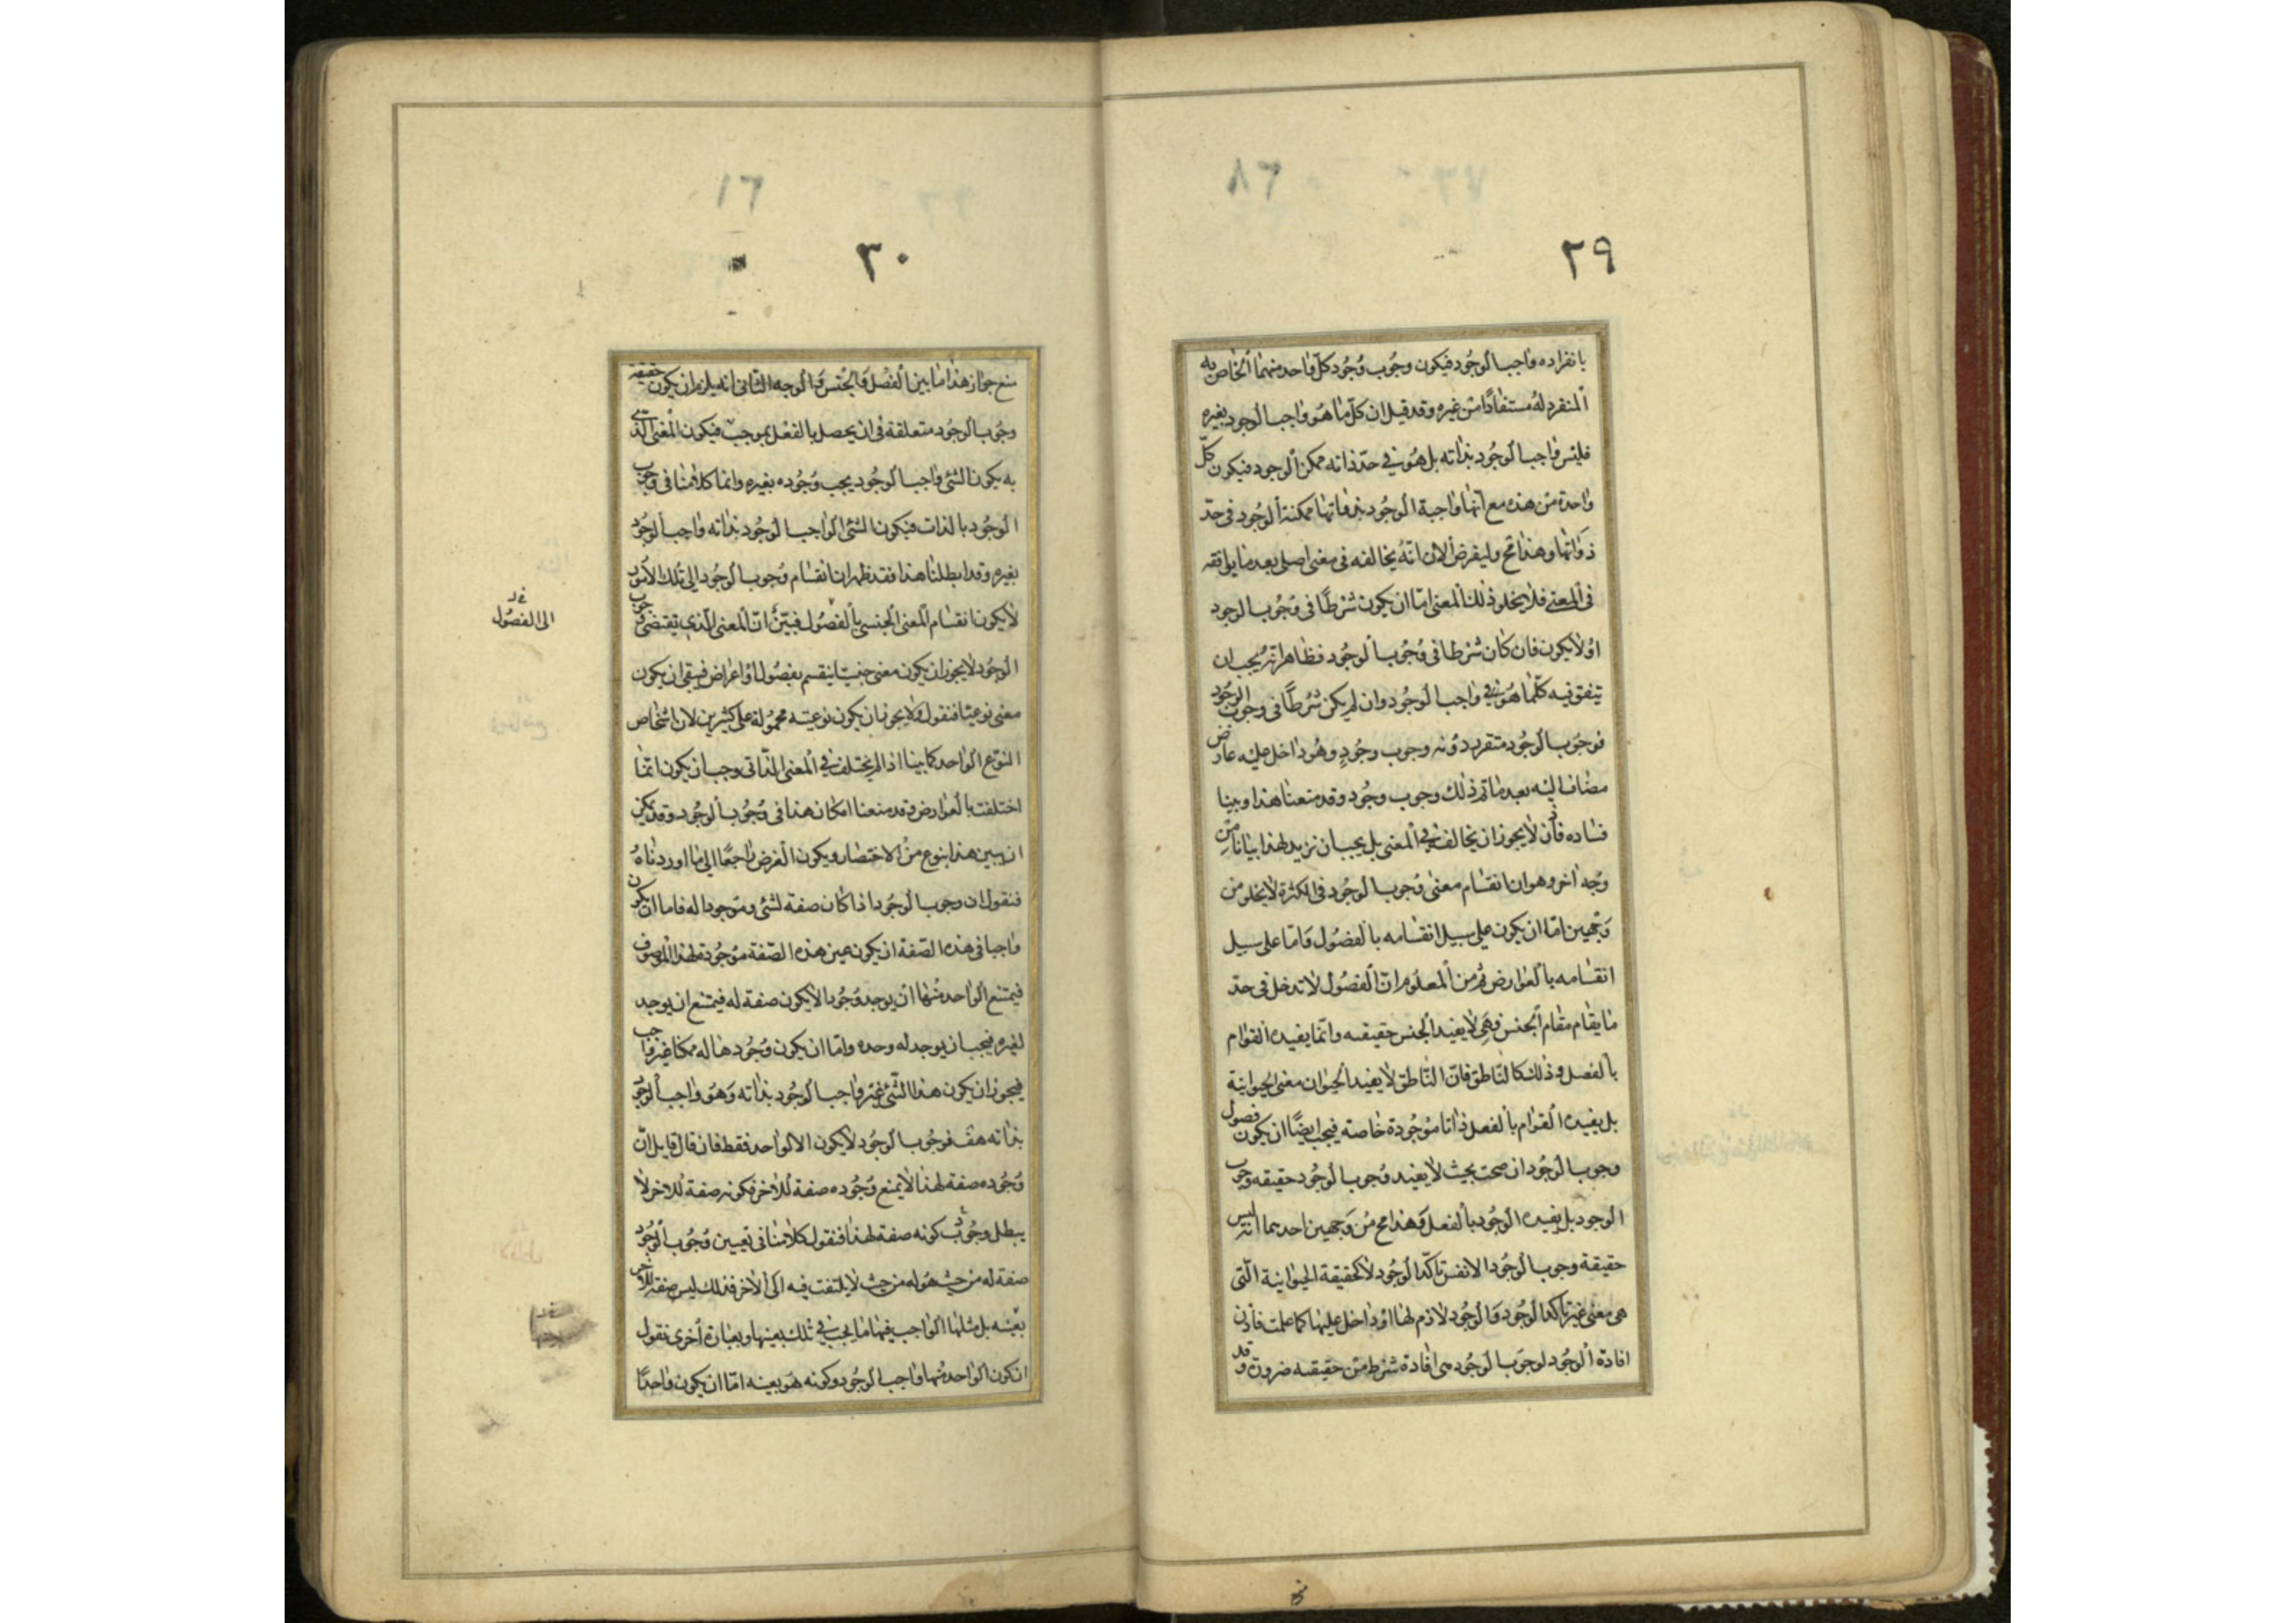 ٢٩
بانفراده واجب الوجود فيكون وجوب وجود كل واحد منهما الخاص به
المنفرد له مستفادا من غيره وقد قيل ان كل ما هو واجب الوجود بغيره
فليس واجب الوجود بذاته بل هو في حد ذاته ممكن الوجود فيكون كل
واحدة من هذه مع انها واجبة الوجود بذواتها ممكنة الوجود في حد
ذواتها وهذا مح وليفرض الان انه يخالفه في معنى اصلي بعد ما يوافقه
في المعنى فلا يخلو ذلك المعنى اما ان يكون شرطا في وجوب الوجود
او لا يكون فان كان شرطا في وجوب الوجود فظاهر انه يجب ان
يتفق فيه كلما هو في واجب الوجود وان لم يكن شرطا في وجوب الوجود
فوجوب الوجود متقرر دونه وجوب وجود وهو داخل عليه عارض
مضاف اليه بعد ما تم ذلك وجوب وجود وقد منعنا هذا وبينا
فساده فاذن لا يجوز ان يخالف في المعنى بل يجب ان نزيد لهذا بيانا من
وجه اخر وهو ان انقسام معنى وجوب الوجود في الكثرة لا يخلو من
وجهين اما ان يكون على سبيل انقسامه بالفصول واما على سبيل
انقسامه بالعوارض ثم من المعلوم ان الفصول لا تدخل في حد
ما يقام مقام الجنس فهي لا يفيد الجنس حقيقته وانما يفيده القوام
بالفصل وذلك كالناطق فان الناطق لا يفيد الحيوان معنى الحيوانية
بل يفيده القوام بالفصل ذاتا موجودة خاصة فيجب ايضا ان يكون فصول
وجوب الوجود ان صحت بحيث لا يفيد وجوب الوجود حقيقه وجوب
الوجود بل يفيده الوجود بالفعل وهذا مح من وجهين احدهما انه ليس
حقيقة وجوب الوجود الا نفس تاكد الوجود لا كحقيقة الحيوانية التي
هي معنى غير تاكد الوجود والوجود لازم لها او داخل عليها كما علمت فاذن
افادة الوجود لوجوب الوجود هي افادة شرط من حقيقته ضرورة وقد
٣٠
منع جواز هذا ما بين الفصل والجنس والوجه الثاني انه يلزم ان يكون حقيقة
وجوب الوجود متعلقة في ان يحصل بالفعل بموجب فيكون المعنى الذي
به يكون الشئ واجب الوجود يجب وجوده بغيره وانما كلامنا في وجوب
الوجود بالذات فيكون الشئ الواجب الوجود بذاته واجب الوجود
بغيره وقد ابطلنا هذا فقد ظهر ان انقسام وجوب الوجود الى تلك الامور
لا يكون انقسام المعنى الجنسي بالفصول فبين ان المعنى الذي يقتضي وجوب
الوجود لا يجوز ان يكون معنى جنسيا ينقسم بفصول او اعراض فبقي ان يكون
معنى نوعيا فنقول ولا يجوز ان يكون نوعيته محمولة على كثيرين لان اشخاص
النوع الواحد كما بينا اذا لم يختلف في المعنى الذاتي وجب ان يكون انما
اختلفت بالعوارض وقد منعنا امكان هذا في وجوب الوجود وقد يمكن
ان نبين هذا بنوع من الاختصار ويكون الغرض راجعا الى ما اوردناه
فنقول ان وجوب الوجود اذا كان صفة لشئ وموجودا له فاما ان يكون
واجبا في هذه الصفة ان يكون عين هذه الصفة موجودة لهذا الموصوف
فيمتنع الواحد منها ان يوجد وجودا لا يكون صفة له فيمتنع ان يوجد
لغيره فيجب ان يوجد له وحده واما ان يكون وجودها له ممكنا غير واجب
فيجوز ان يكون هذا الشئ غير واجب الوجود بذاته وهو واجب الوجود
بذاته هف فوجوب الوجود لا يكون الا لواحد فقط فان قال قايل ان
وجوده صفة لهذا لا يمنع وجوده صفة للاخر فكونه صفة للاخر لا
يبطل وجوب كونه صفة لهذا فنقول كلامنا في تعيين وجوب الوجود
صفة له من حيث هو له من حيث لا يلتفت فيه الى الاخر فذلك ليس صفة للاخر
بعينه بل مثلها الواجب فيها ما يجب في تلك بعينها وبعبارة اخرى نقول
ان كون الواحد منها واجب الوجود وكونه هو بعينه اما ان يكون واحدا
الى الفصول